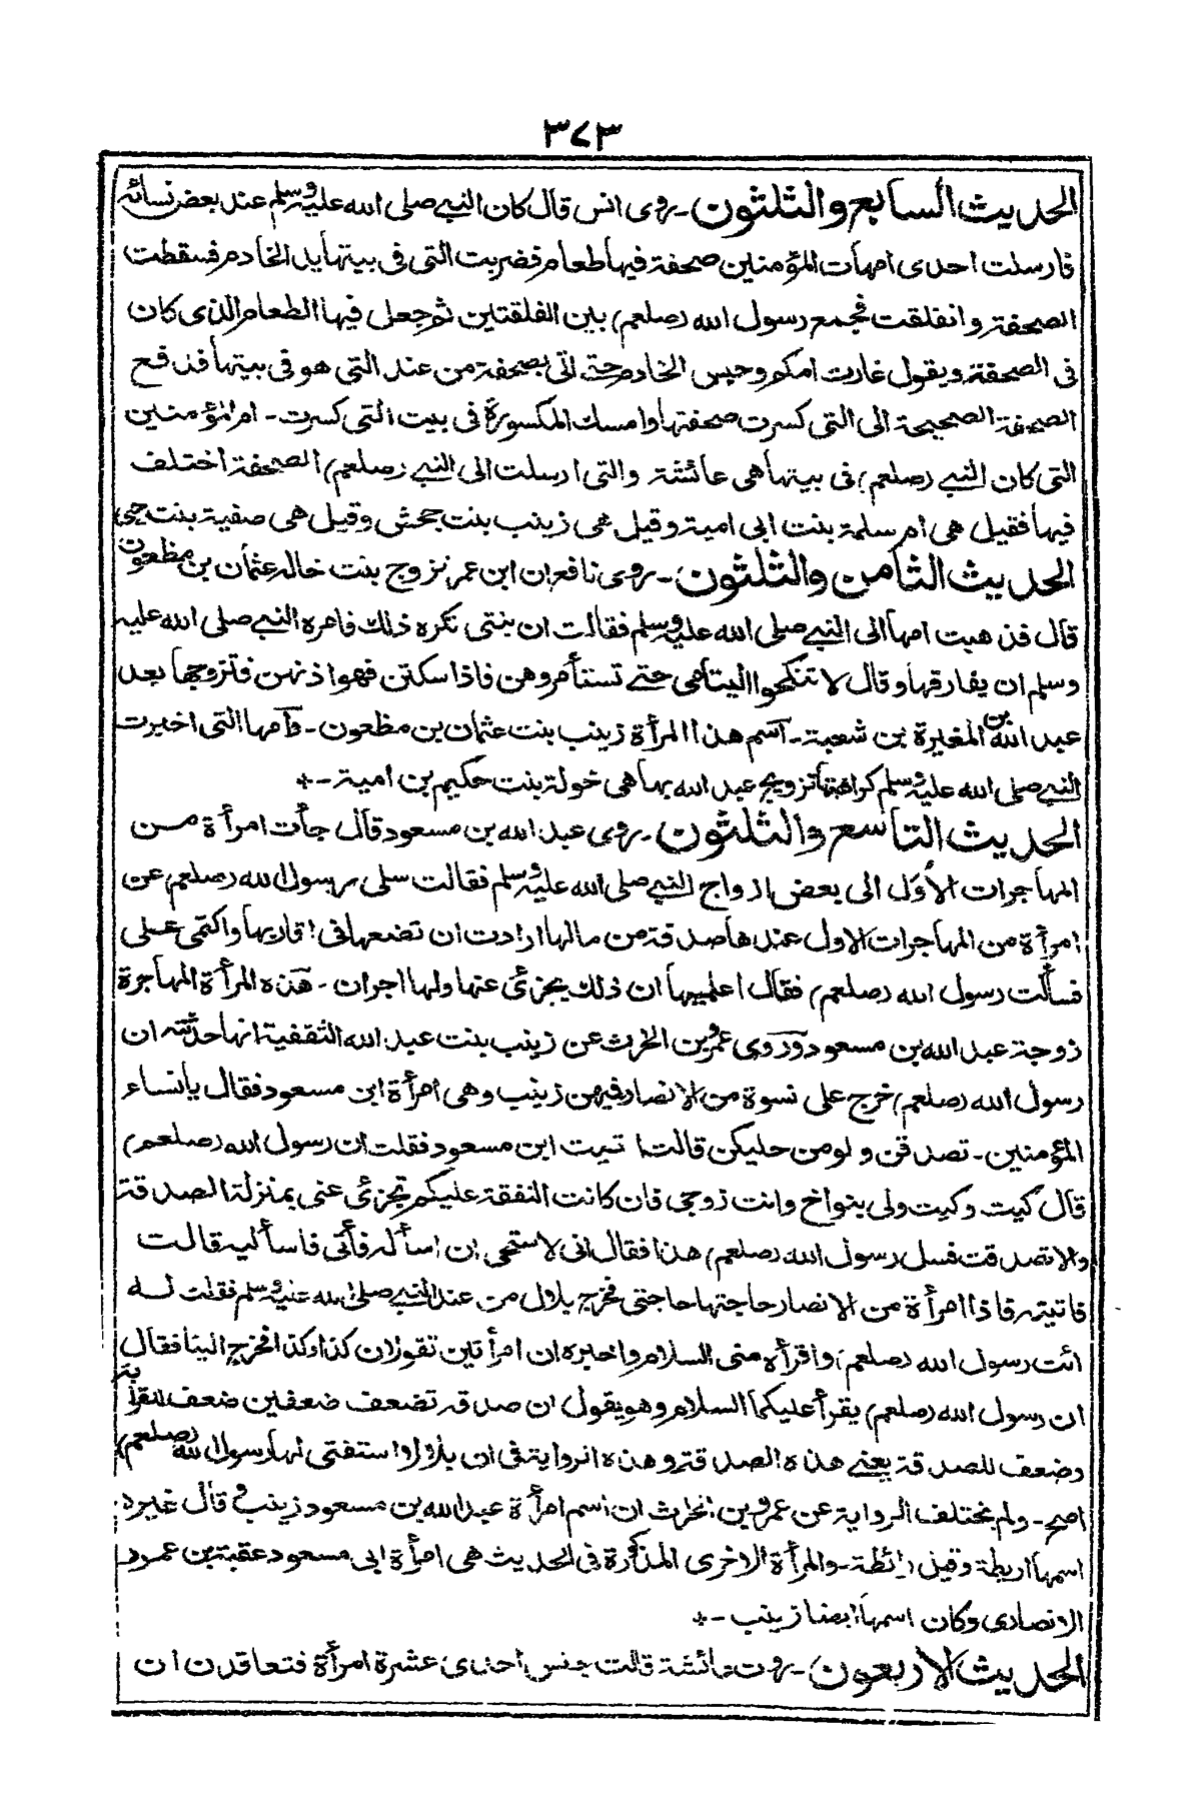 ٣٧٣
الحديث السابع والثلثون ـ روى انس قال كان النبي صلى الله عليه وسلم عند بعض نسائه
فارسلت احدى امهات المؤمنين صحفة فيها طعام فضربت التى فى بيتها يد الخادم فسقطت
الصحفة وانفلقت فجمع رسول الله (صلعم) بين الفلقتين ثم جعل فيها الطعام الذى كان
فى الصحفة ويقول غارت امكم وحبس الخادم حتى اتى بصحفة من عند التى هو فى بيتها فدفع
الصحفة الصحيحة الى التى كسرت صحفتها وامسك المكسورة فى بيت التى كسرت ـ ام المؤمنين
التى كان النبي (صلعم) فى بيتها هى عائشة والتى ارسلت الى النبي (صلعم) الصحفة اختلف
فيها فقيل هى ام سلمة بنت ابى امية وقيل هى زينب بنت جحش وقيل هى صفية بنت حيى
الحديث الثامن والثلثون ـ روى نافع ان ابن عمر تزوج بنت خاله عثمان بن مظعون
قال فذهبت امها الى النبي صلى الله عليه وسلم فقالت ان بنتى تكره ذلك فامره النبي صلى الله عليه
وسلم ان يفارقها وقال لا تنكحوا اليتامى حتى تستأمروهن فاذا سكتن فهو اذنهن فتزوجها بعد
عبد الله بن المغيرة بن شعبة ـ اسم هذا المرأة زينب بنت عثمان بن مظعون ـ وامها التى اخبرت
النبي صلى الله عليه وسلم كراهتها تزويج عبد الله بها هى خولة بنت حكيم بن امية ـ *
الحديث التاسع والثلثون ـ روى عبد الله بن مسعود قال جأت امرأة من
المهاجرات الأول الى بعض ازواج النبي صلى الله عليه وسلم فقالت سلى رسول الله (صلعم) عن
امرأة من المهاجرات الاول عندها صدقة من مالها ارادت ان تضعها فى اقاربها واكتمى على
فسألت رسول الله (صلعم) فقال اعلميها ان ذلك يجزئ عنها ولها اجران ـ هذه المرأة المهاجرة
زوجة عبد الله بن مسعود وروى عمرو بن الحرث عن زينب بنت عبد الله الثقفية انها حدثته ان
رسول الله (صلعم) خرج على نسوة من الانصار فيهن زينب وهى امرأة ابن مسعود فقال يا نساء
المؤمنين ـ تصدقن ولو من حليكن قالت اتيت ابن مسعود فقلت ان رسول الله (صلعم)
قال كيت وكيت ولى بنواخ وانت زوجى فان كانت النفقة عليكم تجزئ عنى بمنزلة الصدقة
والا تصدقت فسل رسول الله (صلعم) هذا فقال انى لاستحى ان اسأله فأتى فاسأليه قالت
فاتيته فاذا امرأة من الانصار حاجتها حاجتى فخرج بلال من عند النبي صلى الله عليه وسلم فقلت له
ائت رسول الله (صلعم) واقرأه منى السلام واخبره ان امرأتين تقولان كذا وكذا فخرج الينا فقال
ان رسول الله (صلعم) يقرأ عليكما السلام وهو يقول ان صدقة تضعف ضعفين ضعف للقرابة
وضعف للصدقة يعنى هذه الصدقة وهذه الرواية فى ان بلالا استفتى لها رسول الله (صلعم)
اصح ـ ولم يختلف الرواية عن عمرو بن الحرث ان اسم امرأة عبد الله بن مسعود زينب وقال غيره
اسمها اريطة وقيل رائطة ـ والمرأة الاخرى المذكورة فى الحديث هى امرأة ابى مسعود عقبة بن عمرو
الانصارى وكان اسمها ايضا زينب ـ *
الحديث الاربعون ـ روت عائشة قالت جلس احدى عشرة امرأة فتعاقدن ان